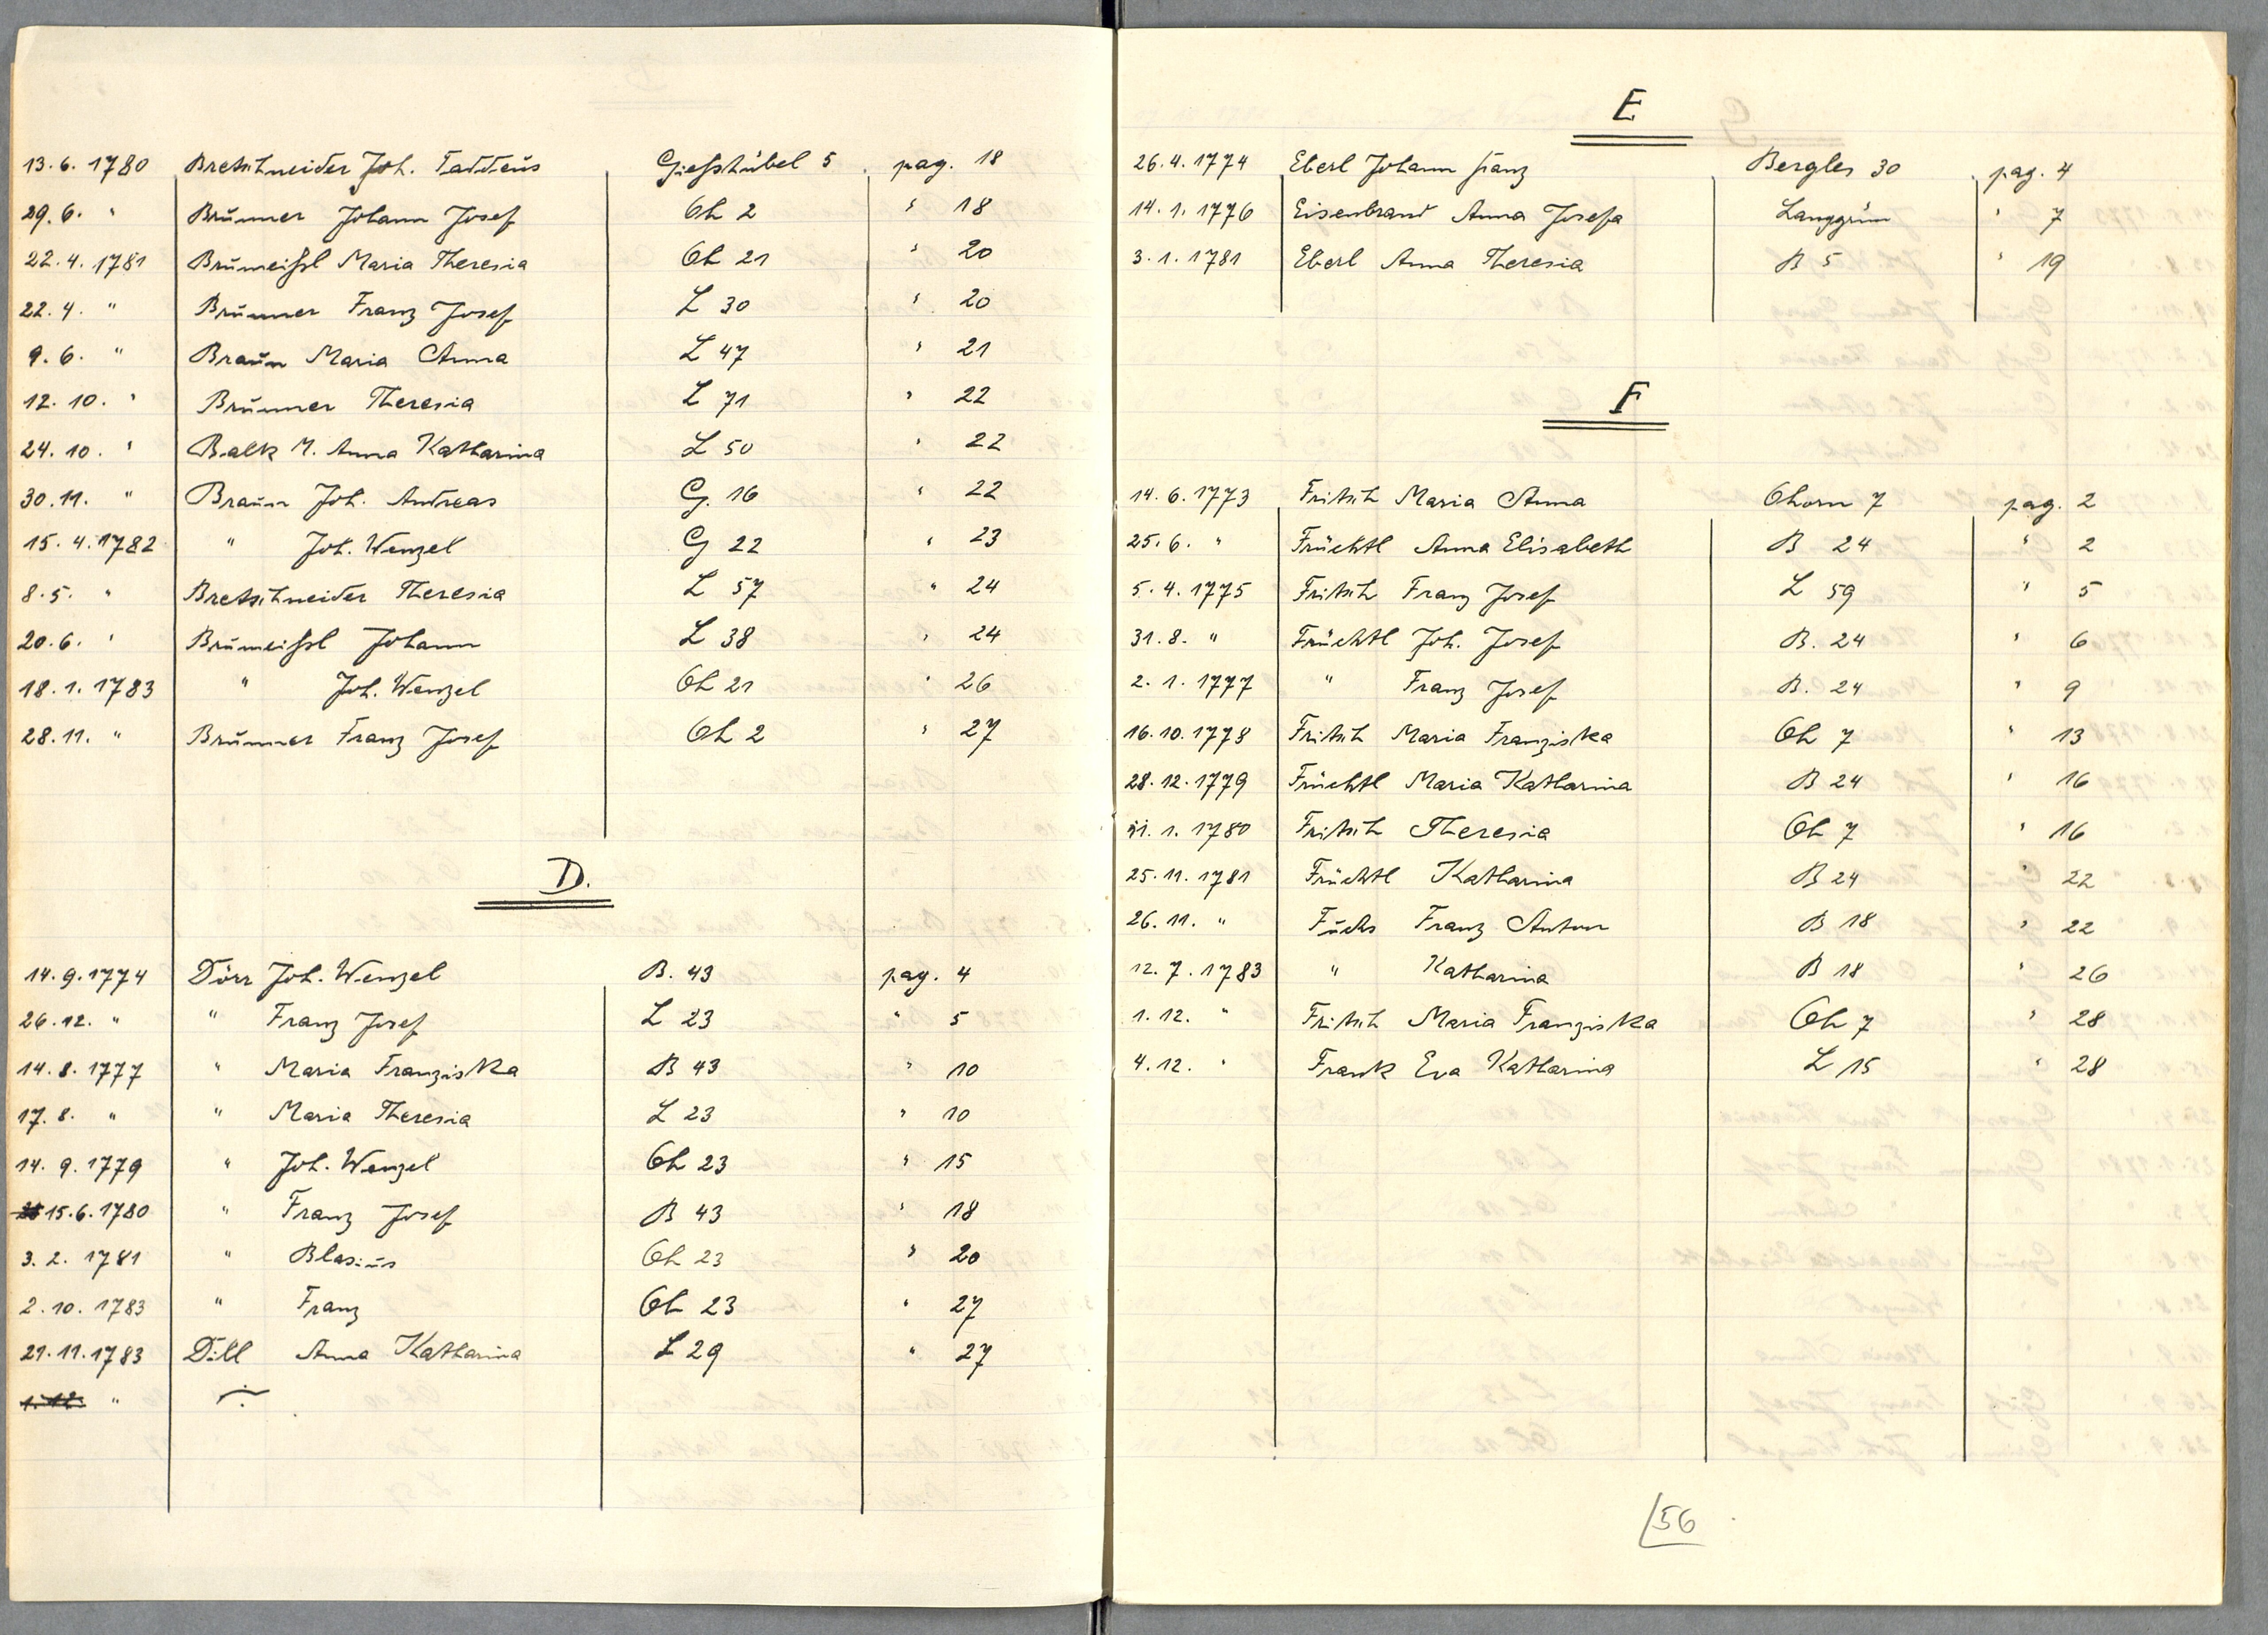 13.6.1780 Bretschneider Joh. Taddeus Giesshübel 5 pag. 18
29.6. " Brunner Johann Josef Oh 2 " 18
22.4.1781 Brumeißl Maria Theresia Oh 21 " 20
22.4. " Brunner Franz Josef L 30 " 20
9.6. " Braun Maria Anna L 47 " 21
12.10. " Brunner Theresia L 71 " 22
24.10. " Balk M. Anna Katharina L 50 " 22
30.11. " Braun Joh. Andreas G. 16 " 22
15.4.1782 " Joh. Wenzel G 22 " 23
8.5. " Bretschneider Theresia L 57 " 24
20.6. " Brumeißl Johann L 38 " 24
18.1.1783 " Joh. Wenzel Oh 21 " 26
28.11. " Brunner Franz Josef Oh 2 " 27
D.
14.9.1774 Dörr Joh. Wenzel B. 43 pag. 4
26.12. " " Franz Josef L 23 " 5
14.8.1777 " Maria Franziska B 43 " 10
17.8. " " Maria Theresia L 23 " 10
14.9.1779 " Joh. Wenzel Oh 23 " 15
15.6.1780 " Franz Josef B 43 " 18
3.2.1781 " Blasius Oh 23 " 20
2.10.1783 " Franz Oh 23 " 27
21.11.1783 Dill Anna Katharina L 29 " 27
1.12. "
E
26.4.1774 Eberl Johann Franz Bergles 30 pag. 4
14.1.1776 Eisenbrand Anna Josefa Langgrün " 7
3.1.1781 Eberl Anna Theresia B 5 " 19
F
14.6.1773 Fritsch Maria Anna Ohorn 7 pag. 2
25.6. " Früchtl Anna Elisabeth B 24 " 2
5.4.1775 Fritsch Franz Josef L 59 " 5
31.8. " Früchtl Joh. Josef B. 24 " 6
2.1.1777 " Franz Josef B. 24 " 9
16.10.1778 Fritsch Maria Franziska Oh 7 " 13
28.12.1779 Früchtl Maria Katharina B 24 " 16
31.1.1780 Fritsch Theresia Oh 7 " 16
25.11.1781 Früchtl Katharina B 24 " 22
26.11. " Fuchs Franz Anton B 18 " 22
12.7.1783 " Katharina B 18 " 26
1.12. " Fritsch Maria Franziska Oh 7 " 28
4.12. " Frank Eva Katharina L 15 " 28
56